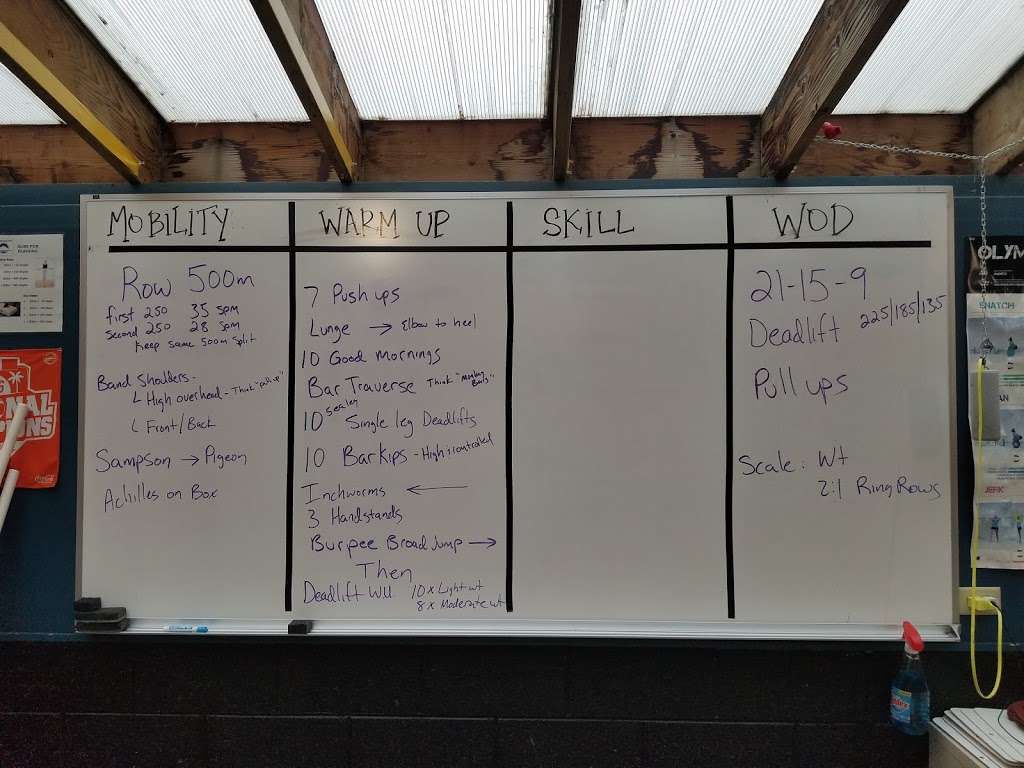 MOBILITY
Row 500m
first 250 35 spm
second 250 28 spm
Keep same 500m split
Band Shoulders -
High overhead - Think "pull up"
Front/Back
Sampson → Pigeon
Achilles on Box
WARM UP
7 Push ups
Lunge → Elbow to heel
10 Good Mornings
Bar Traverse Think "monkey Bars"
10 Single leg Deadlifts
10 Bar Kips - High & controlled
Inchworms ←
3 Handstands
Burpee Broad Jump →
Then
Deadlift WU 10x Light wt
8x Moderate wt
SKILL
WOD
21-15-9
Deadlift 225/185/135
Pull ups
Scale: Wt
2:1 Ring Rows
OLYM
SNATCH
JERK